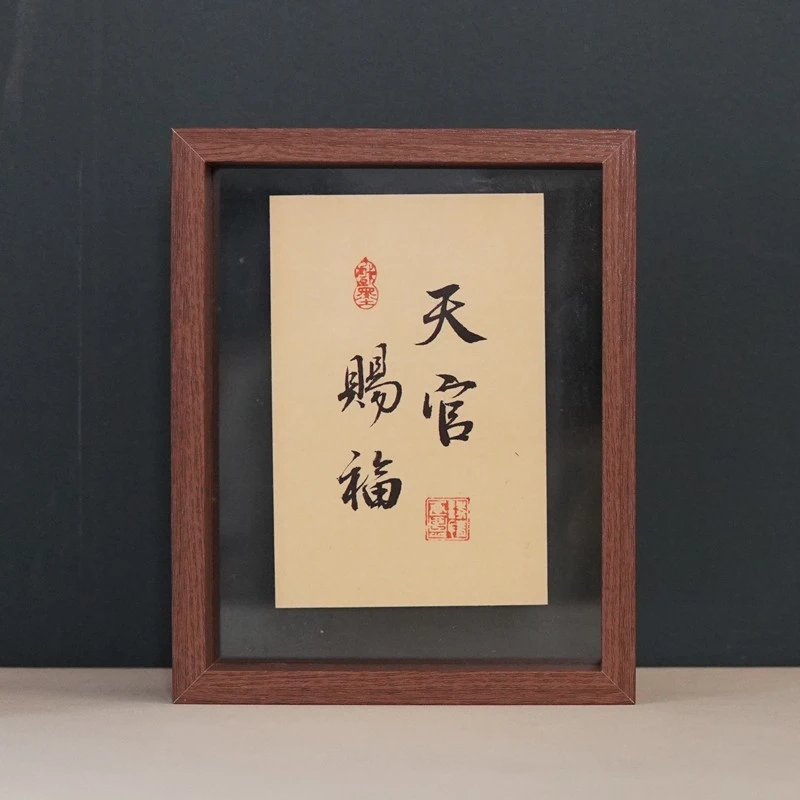 天官
賜福